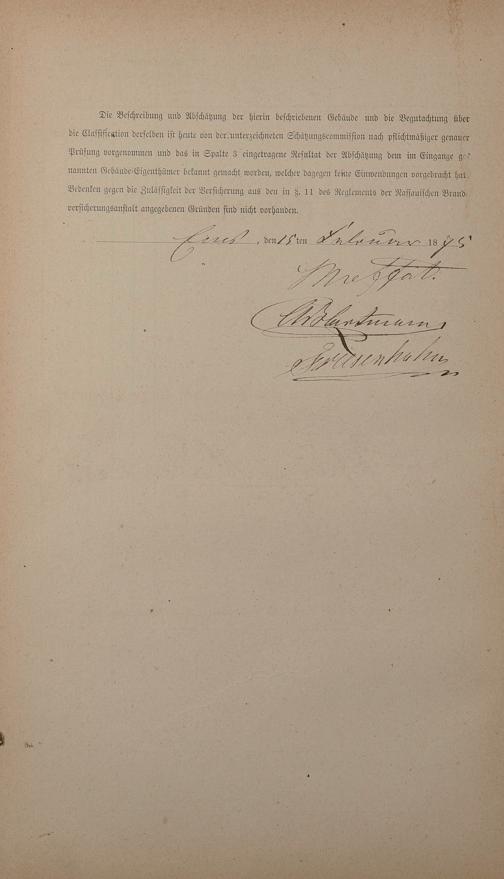 Die Beschreibung und Abschätzung der hierin beschriebenen Gebäude und die Begutachtung über
die Classification derselben ist heute von der unterzeichneten Schätzungscommission nach pflichtmäßiger genauer
Prüfung vorgenommen und das in Spalte 3 eingetragene Resultat der Abschätzung dem im Eingange ge
nannten Gebäude-Eigenthümer bekannt gemacht worden, welcher dagegen keine Einwendungen vorgebracht hat.
Bedenken gegen die Zulässigkeit der Versicherung aus den in §. 11 des Reglements der Nassauischen Brand-
versicherungsanstalt angegebenen Gründen sind nicht vorhanden.
Ems, den 15 ten Februar 1875
Hartmann
Friesenhahn